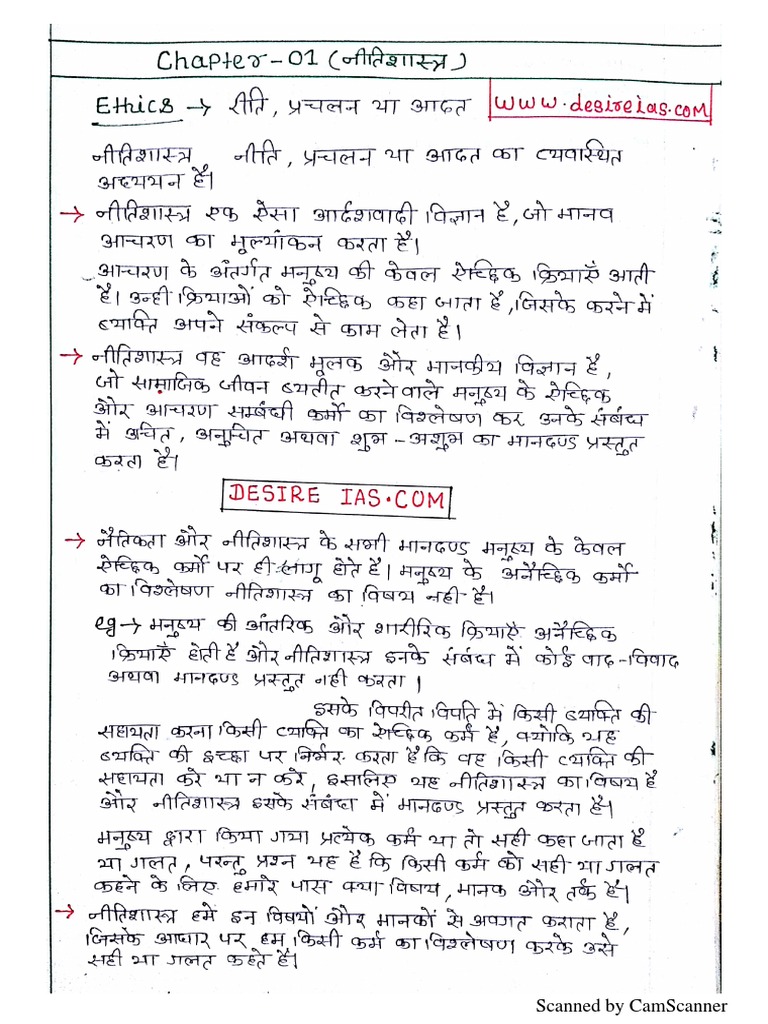 Chapter-01 (नीतिशास्त्र)
Ethics → रीति, प्रचलन या आदत
www.desireias.com
नीतिशास्त्र नीति, प्रचलन या आदत का व्यवस्थित
अध्ययन है।
→ नीतिशास्त्र एक ऐसा आर्दशवादी विज्ञान है, जो मानव
आचरण का मूल्यांकन करता है।
आचरण के अंतर्गत मनुष्य की केवल ऐच्छिक क्रियाएँ आती
है। उन्ही क्रियाओं को ऐच्छिक कहा जाता है, जिसके करने में
व्यक्ति अपने संकल्प से काम लेता है।
→ नीतिशास्त्र वह आदर्श मूलक और मानकीय विज्ञान है,
जो सामाजिक जीवन व्यतीत करने वाले मनुष्य के ऐच्छिक
और आचरण सम्बंधी कर्मो का विश्लेषण कर उनके संबंध
में उचित, अनुचित अथवा शुभ-अशुभ का मानदण्ड प्रस्तुत
करता है।
DESIRE IAS.COM
→ नैतिकता और नीतिशास्त्र के सभी मानदण्ड मनुष्य के केवल
ऐच्छिक कर्मो पर ही लागू होते है। मनुष्य के अनैच्छिक कर्मो
का विश्लेषण नीतिशास्त्र का विषय नही है।
eg → मनुष्य की आंतरिक और शारीरिक क्रियाएँ अनैच्छिक
क्रियाएँ होती है और नीतिशास्त्र इनके संबंध में कोई वाद-विवाद
अथवा मानदण्ड प्रस्तुत नही करता।
इसके विपरीत विपति में किसी व्यक्ति की
सहायता करना किसी व्यक्ति का ऐच्छिक कर्म है, क्योकि यह
व्यक्ति की इच्छा पर निर्भर करता है कि वह किसी व्यक्ति की
सहायता करे या न करे, इसलिए यह नीतिशास्त्र का विषय है
और नीतिशास्त्र इसके संबंध में मानदण्ड प्रस्तुत करता है।
मनुष्य द्वारा किया गया प्रत्येक कर्म या तो सही कहा जाता है
या गलत, परन्तु प्रश्न यह है कि किसी कर्म को सही या गलत
कहने के लिए हमारे पास क्या विषय, मानक और तर्क है।
→ नीतिशास्त्र हमे इन विषयों और मानकों से अवगत कराता है,
जिसके आधार पर हम किसी कर्म का विश्लेषण करके उसे
सही या गलत कहते है।
Scanned by CamScanner